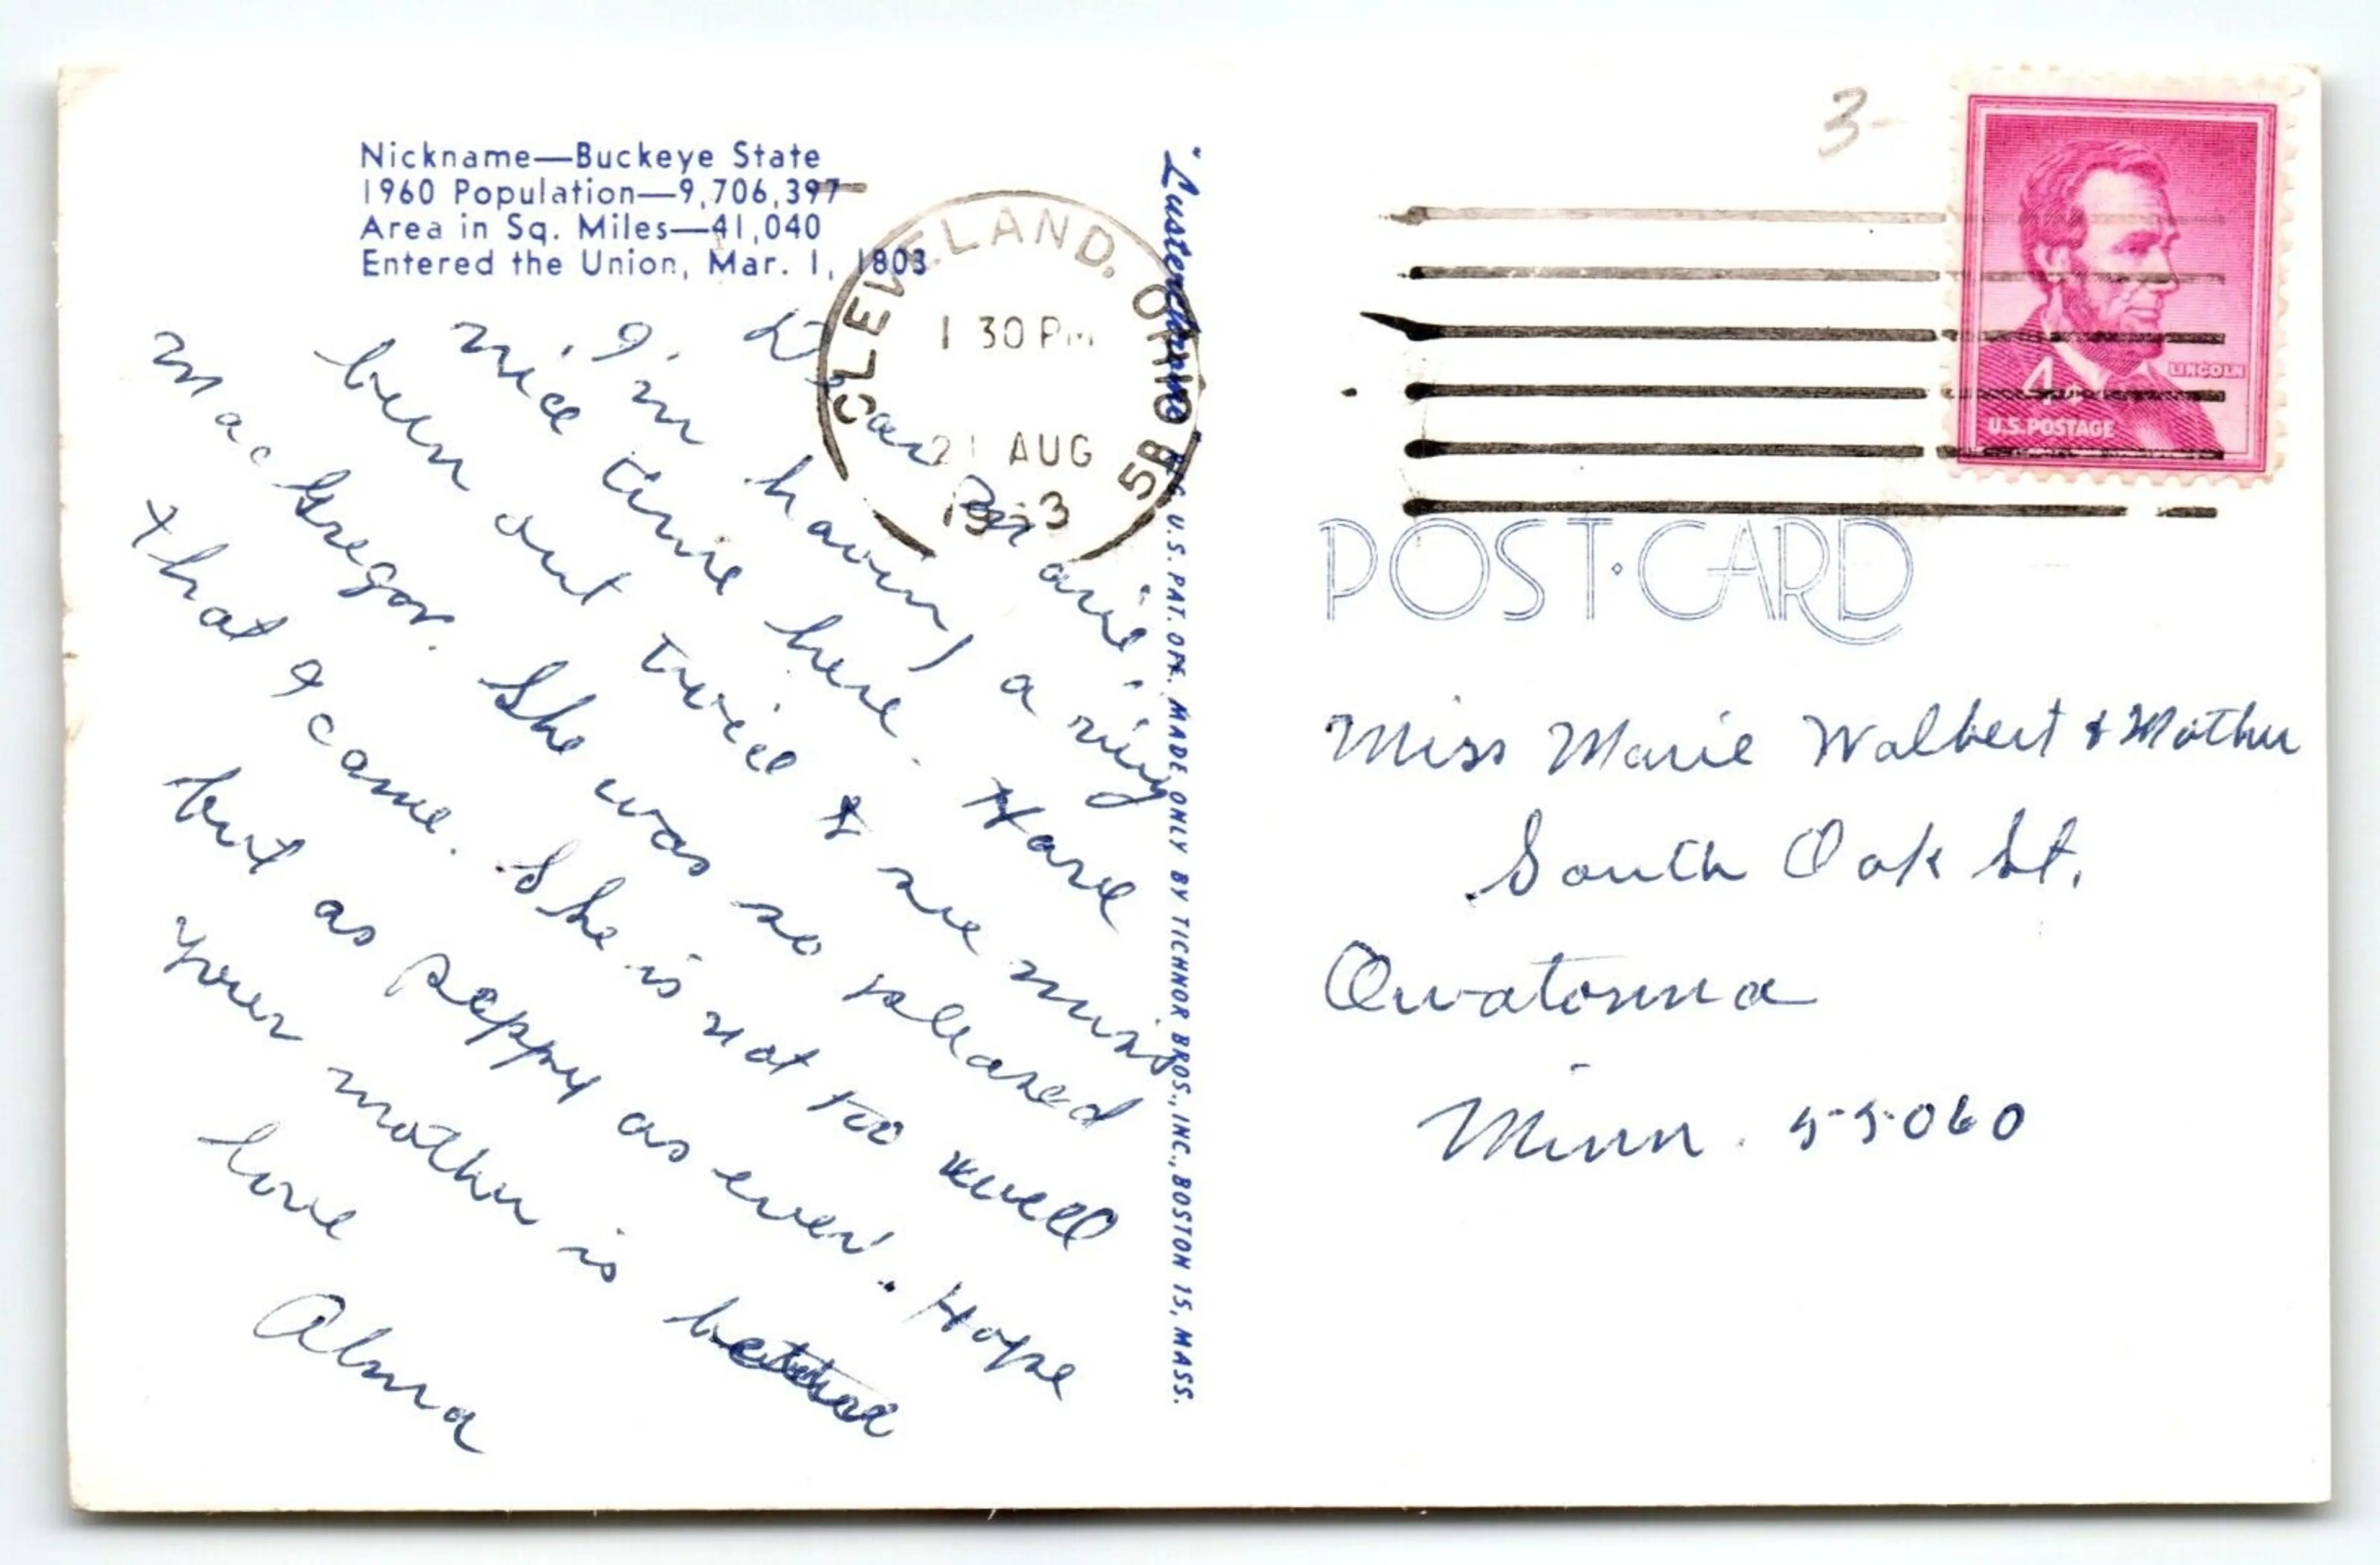 Nickname—Buckeye State
1960 Population—9,706,397
Area in Sq. Miles—41,040
Entered the Union, Mar. 1, 1803
Dear
I'm having a very
nice time here. Have
been out twice to see
MacGregor. She was so pleased
that I came. She is not too well
but as peppy as ever. Hope
your mother is better
Love
Alma
CLEVELAND, OHIO 5B
1 30 PM
21 AUG
1963
"Lusterchrome" REG. U.S. PAT. OFF. MADE ONLY BY TICHNOR BROS., INC., BOSTON 15, MASS.
3-
LINCOLN
4¢
U.S. POSTAGE
POST·CARD
Miss Marie Walbert & Mother
South Oak St.
Owatonna
Minn. 55060